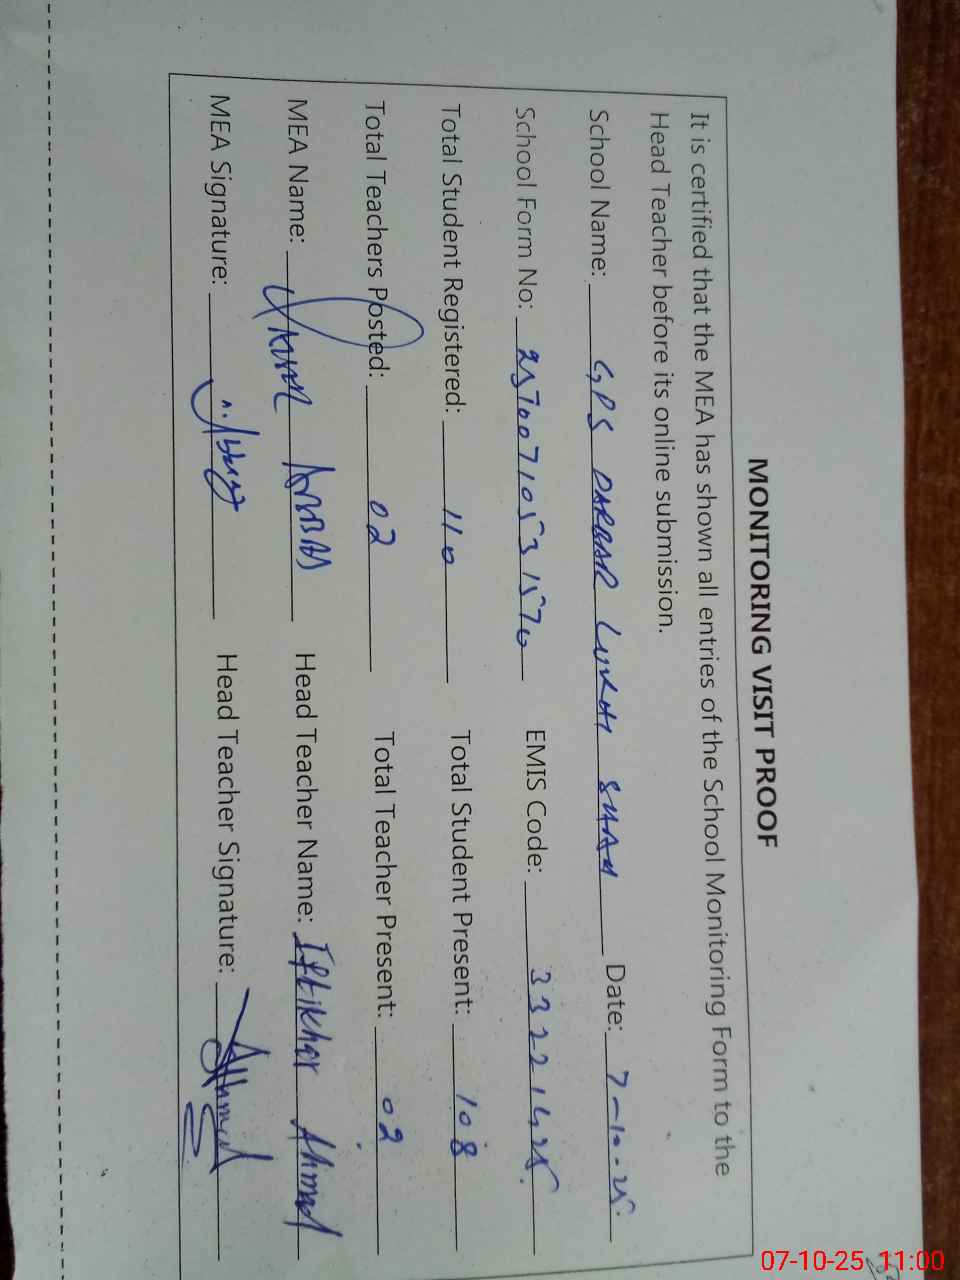 MONITORING VISIT PROOF
It is certified that the MEA has shown all entries of the School Monitoring Form to the
Head Teacher before its online submission.
School Name: GPS DARBAR SHAH Date: 7-10-25
School Form No: EMIS Code:
Total Student Registered: 110 Total Student Present: 108
Total Teachers Posted: 02 Total Teacher Present: 02
MEA Name: Head Teacher Name: Iftikhar Ahmad
MEA Signature: Head Teacher Signature: Ahmad
07-10-25 11:00